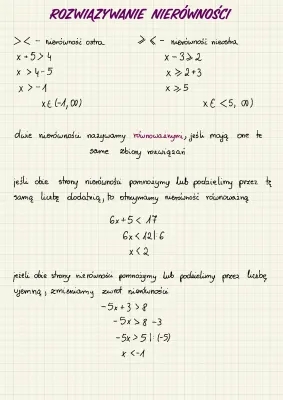 ROZWIĄZYWANIE NIERÓWNOŚCI
> < - nierówność ostra
⩾ ⩽ - nierówność nieostra
x + 5 > 4
x > 4 - 5
x > -1
x ∈ (-1, ∞)
x - 3 ⩾ 2
x ⩾ 2 + 3
x ⩾ 5
x ∈ <5, ∞)
dwie nierówności nazywamy równoważnymi, jeśli mają one te
same zbiory rozwiązań
jeśli obie strony nierówności pomnożymy lub podzielimy przez tę
samą liczbę dodatnią, to otrzymamy nierówność równoważną
6x + 5 < 17
6x < 12 |: 6
x < 2
jeżeli obie strony nierówności pomnożymy lub podzielimy przez liczbę
ujemną, zmieniamy zwrot nierówności
-5x + 3 > 8
-5x > 8 - 3
-5x > 5 |: (-5)
x < -1